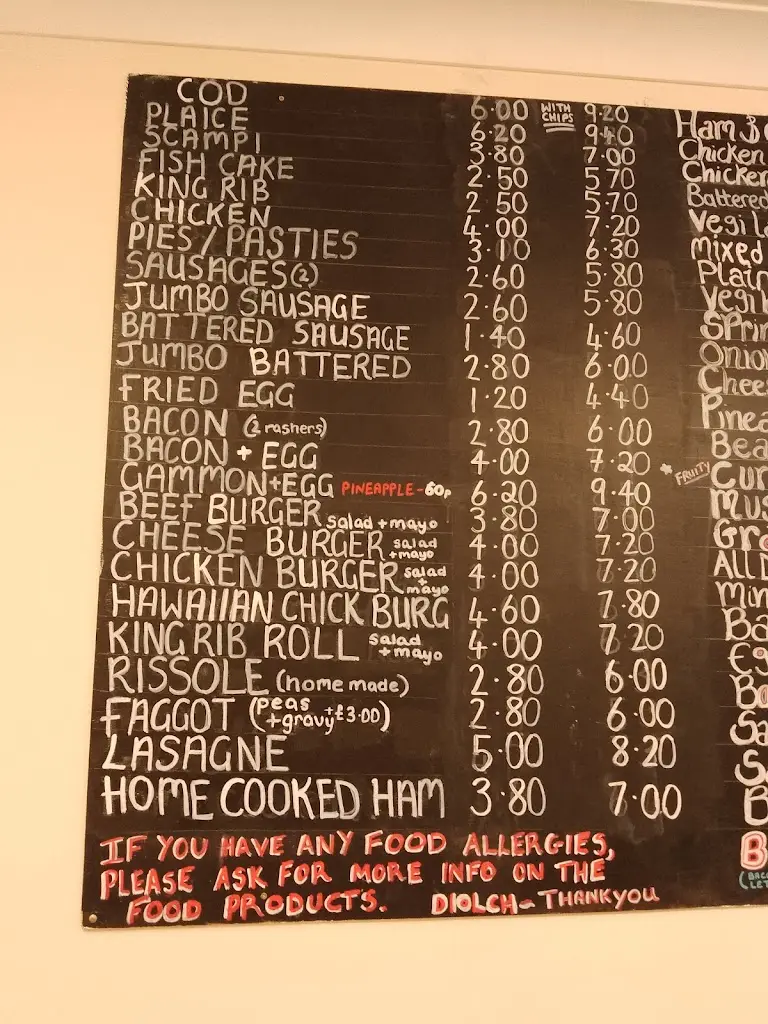 COD 6.00 WITH CHIPS 9.20
PLAICE 6.20 9.40
SCAMPI 3.80 7.00
FISH CAKE 2.50 5.70
KING RIB 2.50 5.70
CHICKEN 4.00 7.20
PIES/PASTIES 3.10 6.30
SAUSAGES (2) 2.60 5.80
JUMBO SAUSAGE 2.60 5.80
BATTERED SAUSAGE 1.40 4.60
JUMBO BATTERED 2.80 6.00
FRIED EGG 1.20 4.40
BACON (2 rashers) 2.80 6.00
BACON + EGG 4.00 7.20
GAMMON+EGG PINEAPPLE-60p 6.20 9.40
BEEF BURGER salad +mayo 3.80 7.00
CHEESE BURGER salad +mayo 4.00 7.20
CHICKEN BURGER salad + mayo 4.00 7.20
HAWAIIAN CHICK BURG 4.60 7.80
KING RIB ROLL salad +mayo 4.00 7.20
RISSOLE (home made) 2.80 6.00
FAGGOT (peas +gravy +£3.00) 2.80 6.00
LASAGNE 5.00 8.20
HOME COOKED HAM 3.80 7.00
IF YOU HAVE ANY FOOD ALLERGIES,
PLEASE ASK FOR MORE INFO ON THE
FOOD PRODUCT'S. DIOLCH~THANKYOU
Ham
Chicken
Chicken
Battered
Vegi
Mixed
Plain
Vegi
Sprin
Onion
Chees
Pinea
Bea
* FRUITY Cur
Mus
Gr
ALL
Min
Ba